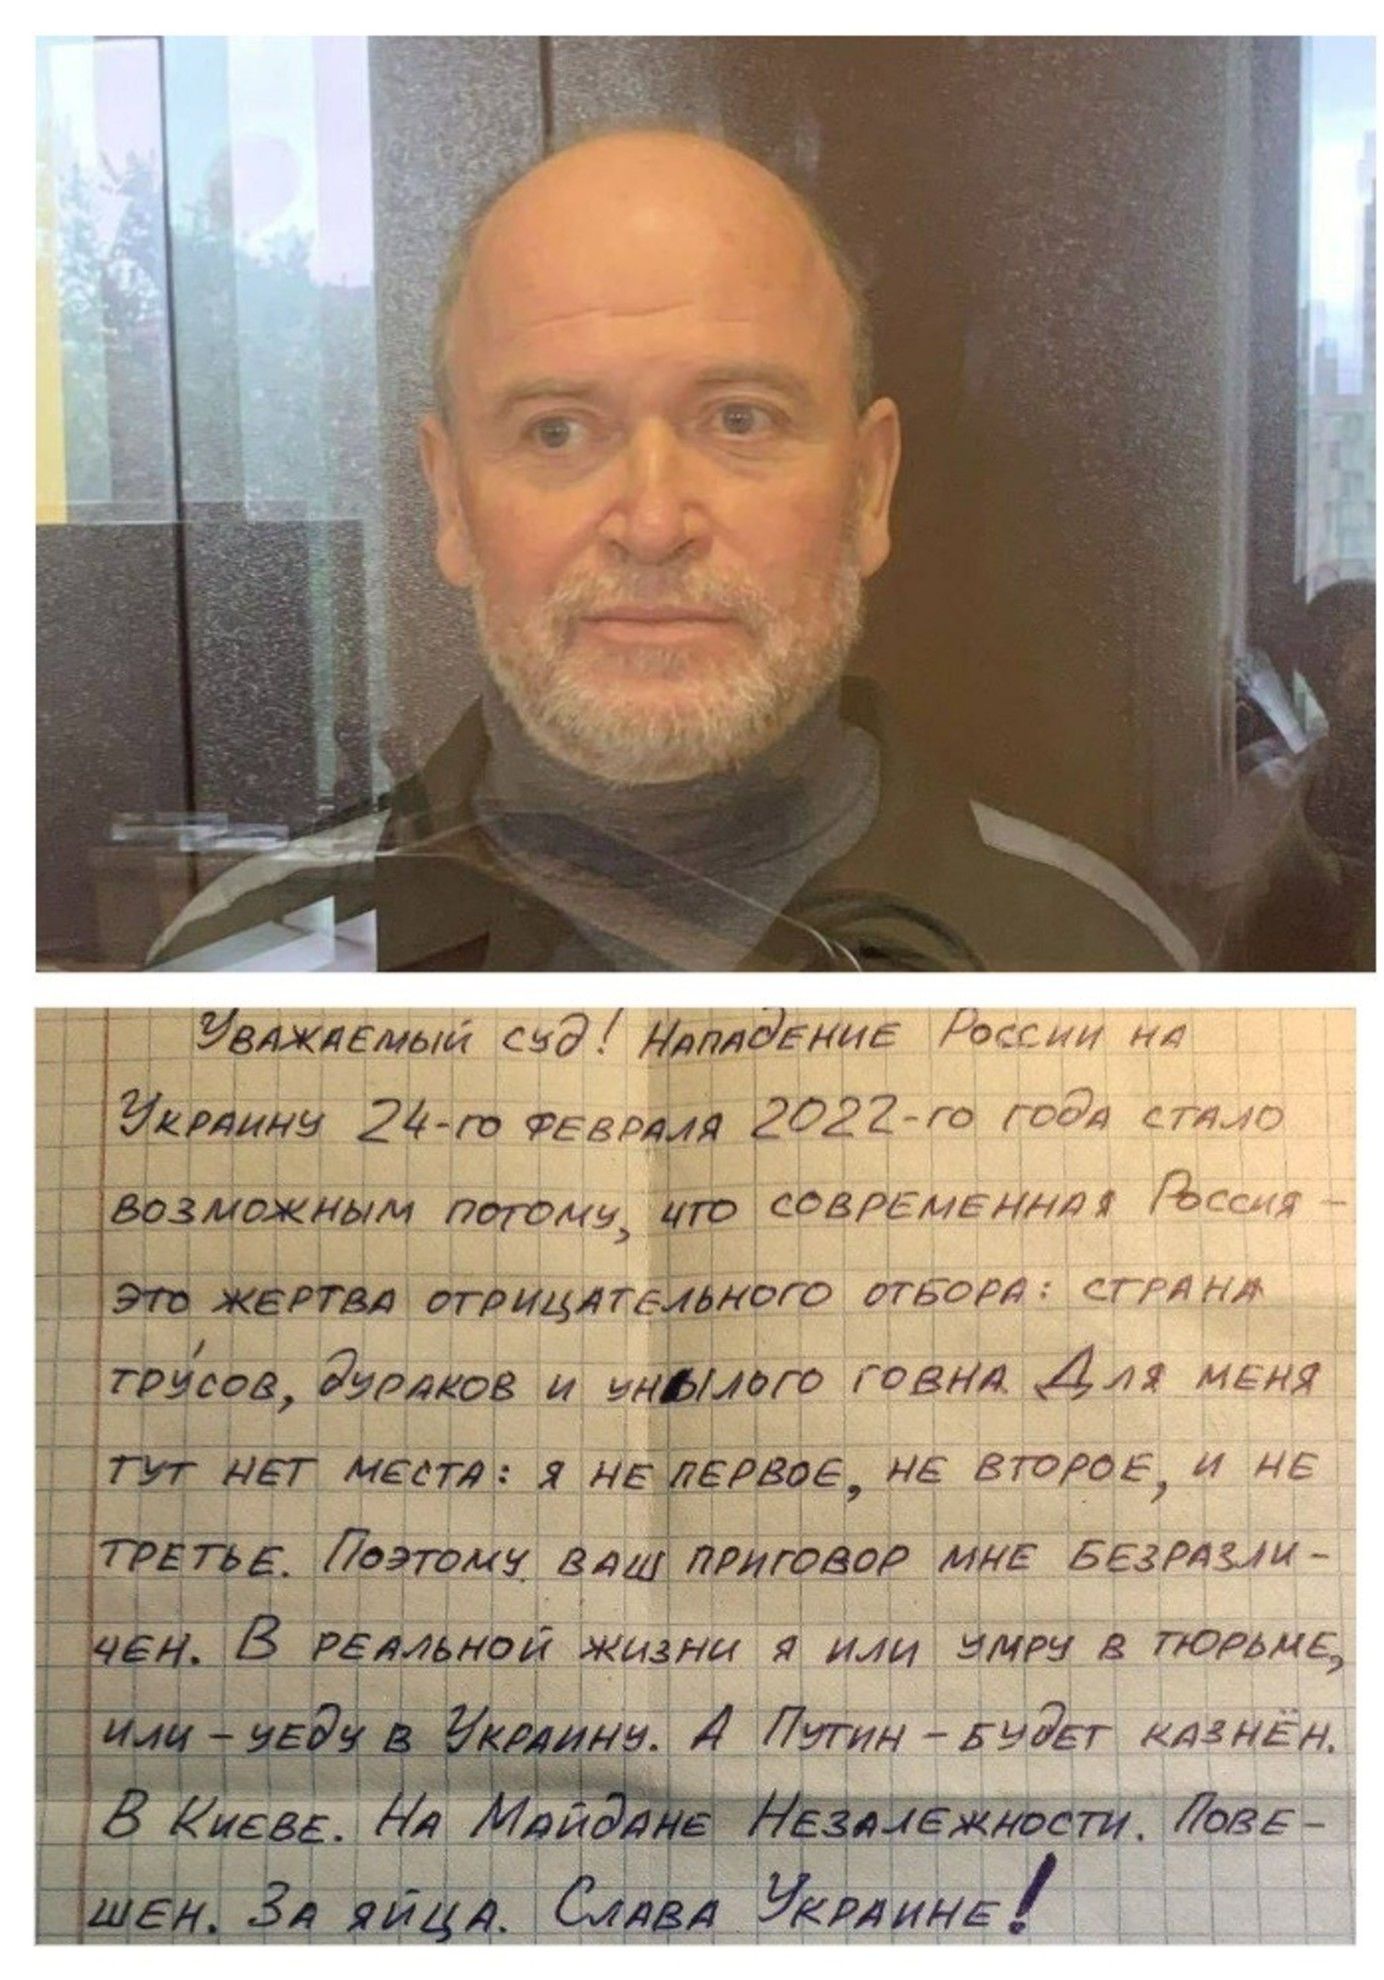 Уважаемый суд! Нападение России на
Украину 24-го февраля 2022-го года стало
возможным потому, что современная Россия –
это жертва отрицательного отбора: страна
тру́сов, дураков и унылого говна. Для меня
тут нет места: я не первое, не второе, и не
третье. Поэтому ваш приговор мне безразли-
чен. В реальной жизни я или умру в тюрьме,
или – уеду в Украину. А Путин – будет казнён.
В Киеве. На Майдане Незалежности. Пове-
шен. За яйца. Слава Украине!